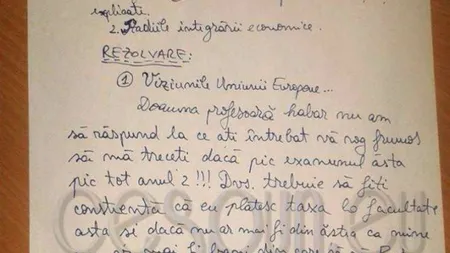 explicate.
2. Stadiile integrării economice.
REZOLVARE:
① Viziunile Uniunii Europene...
Doamna profesoară habar nu am
să răspund la ce ati întrebat vă rog frumos
să mă treceti dacă pic examenul ăsta
pic tot anul 2!!! Dvs. trebuie să fiti
constientă că eu plătesc taxa la facultate
asta si dacă nu ar mai fi din ăstia ca mine